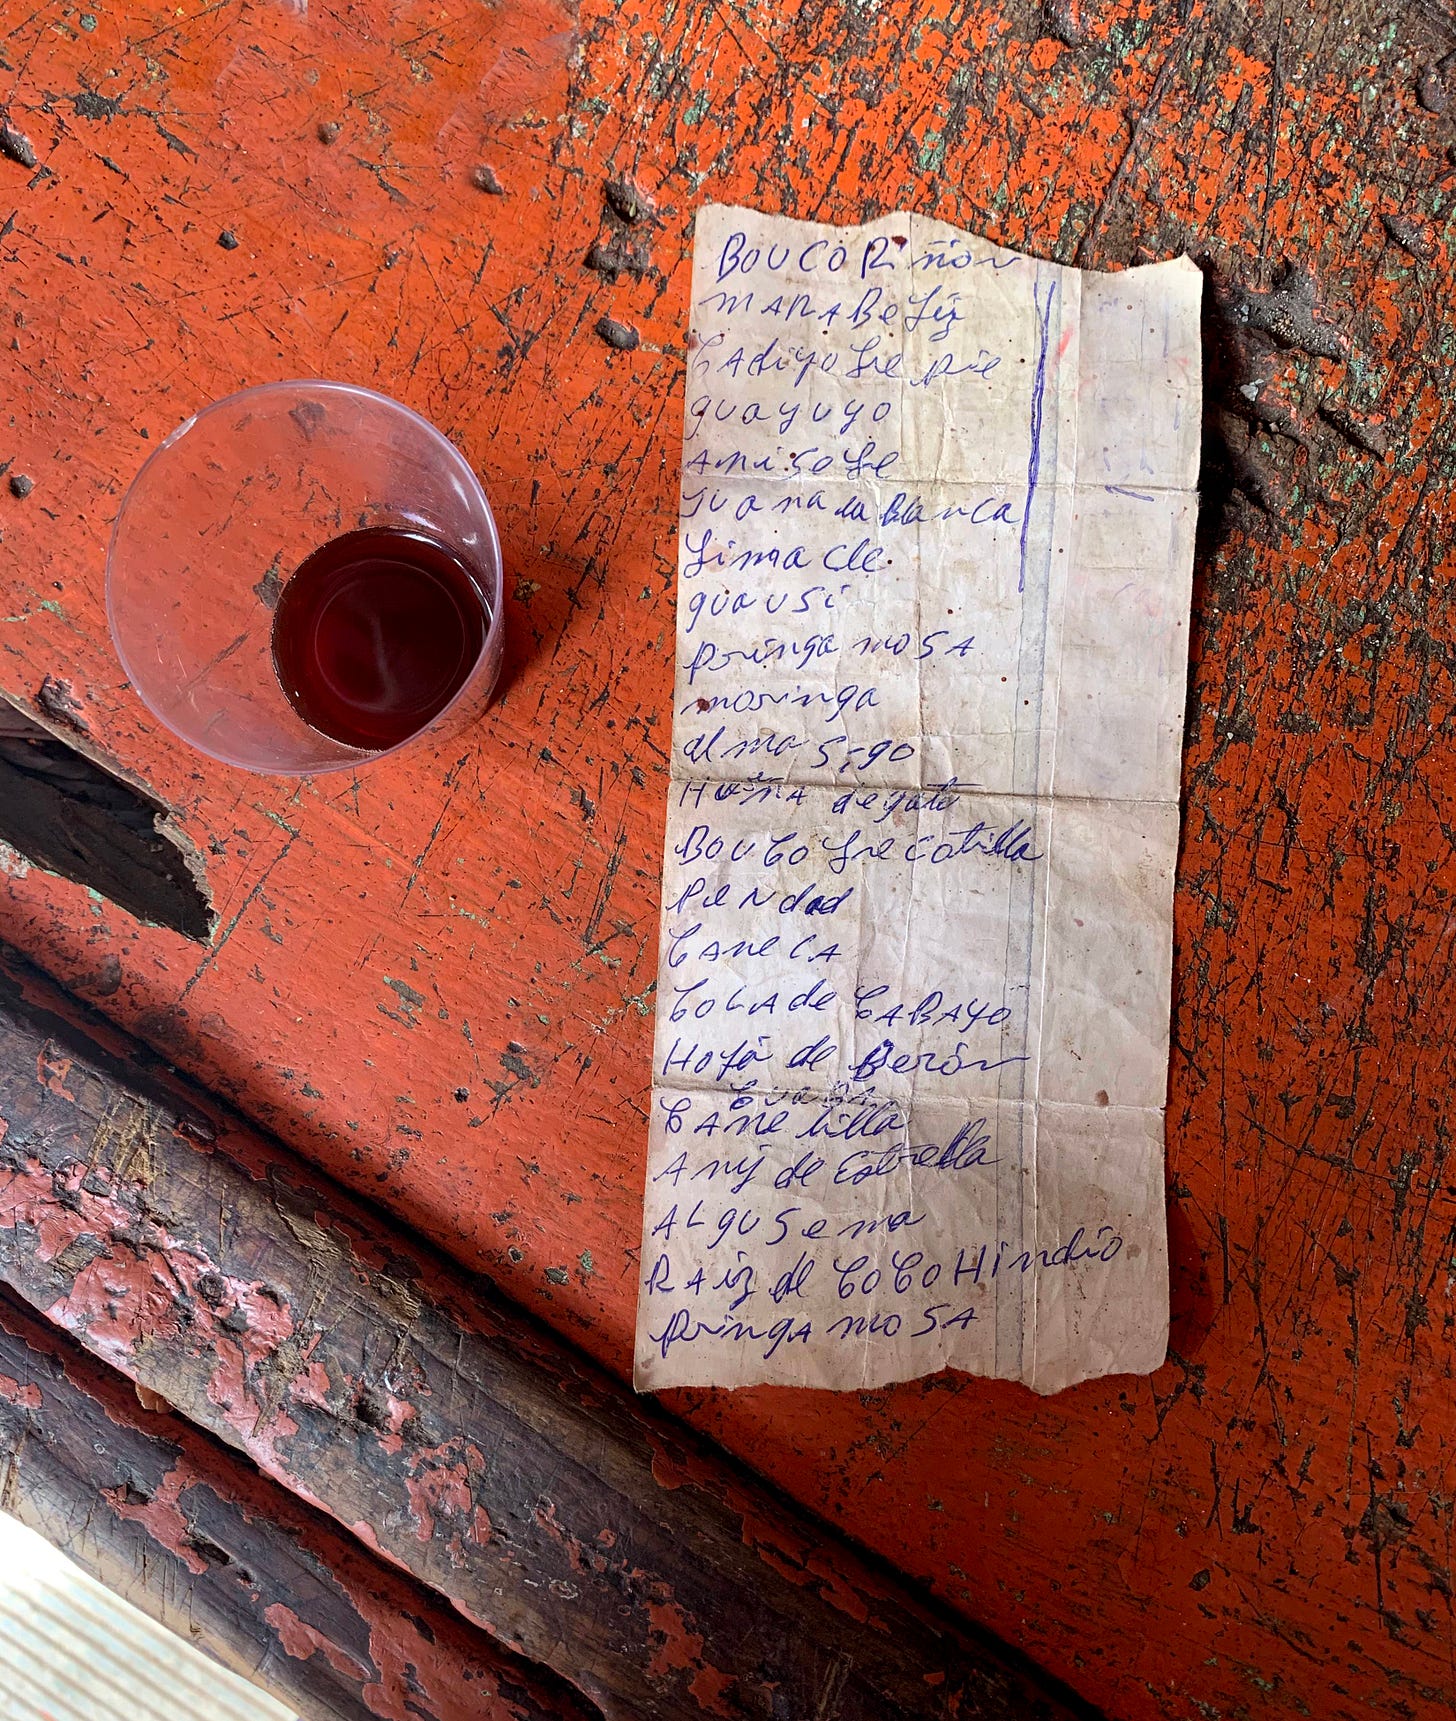 BOUCO Riñon
MARABeliz
CAdiyo de pie
guayuyo
Anisode
Juana la Blanca
Timacle
guausi
pringa moSA
moringa
almasigo
HuñA de gato
BouCo de Cotilla
peNdad
CAneCA
CoLA de CABAYO
Hojá de Berón
CAnelilla
Anij de Estrella
ALguSema
RAiz de CoCo Hindio
pringA moSA